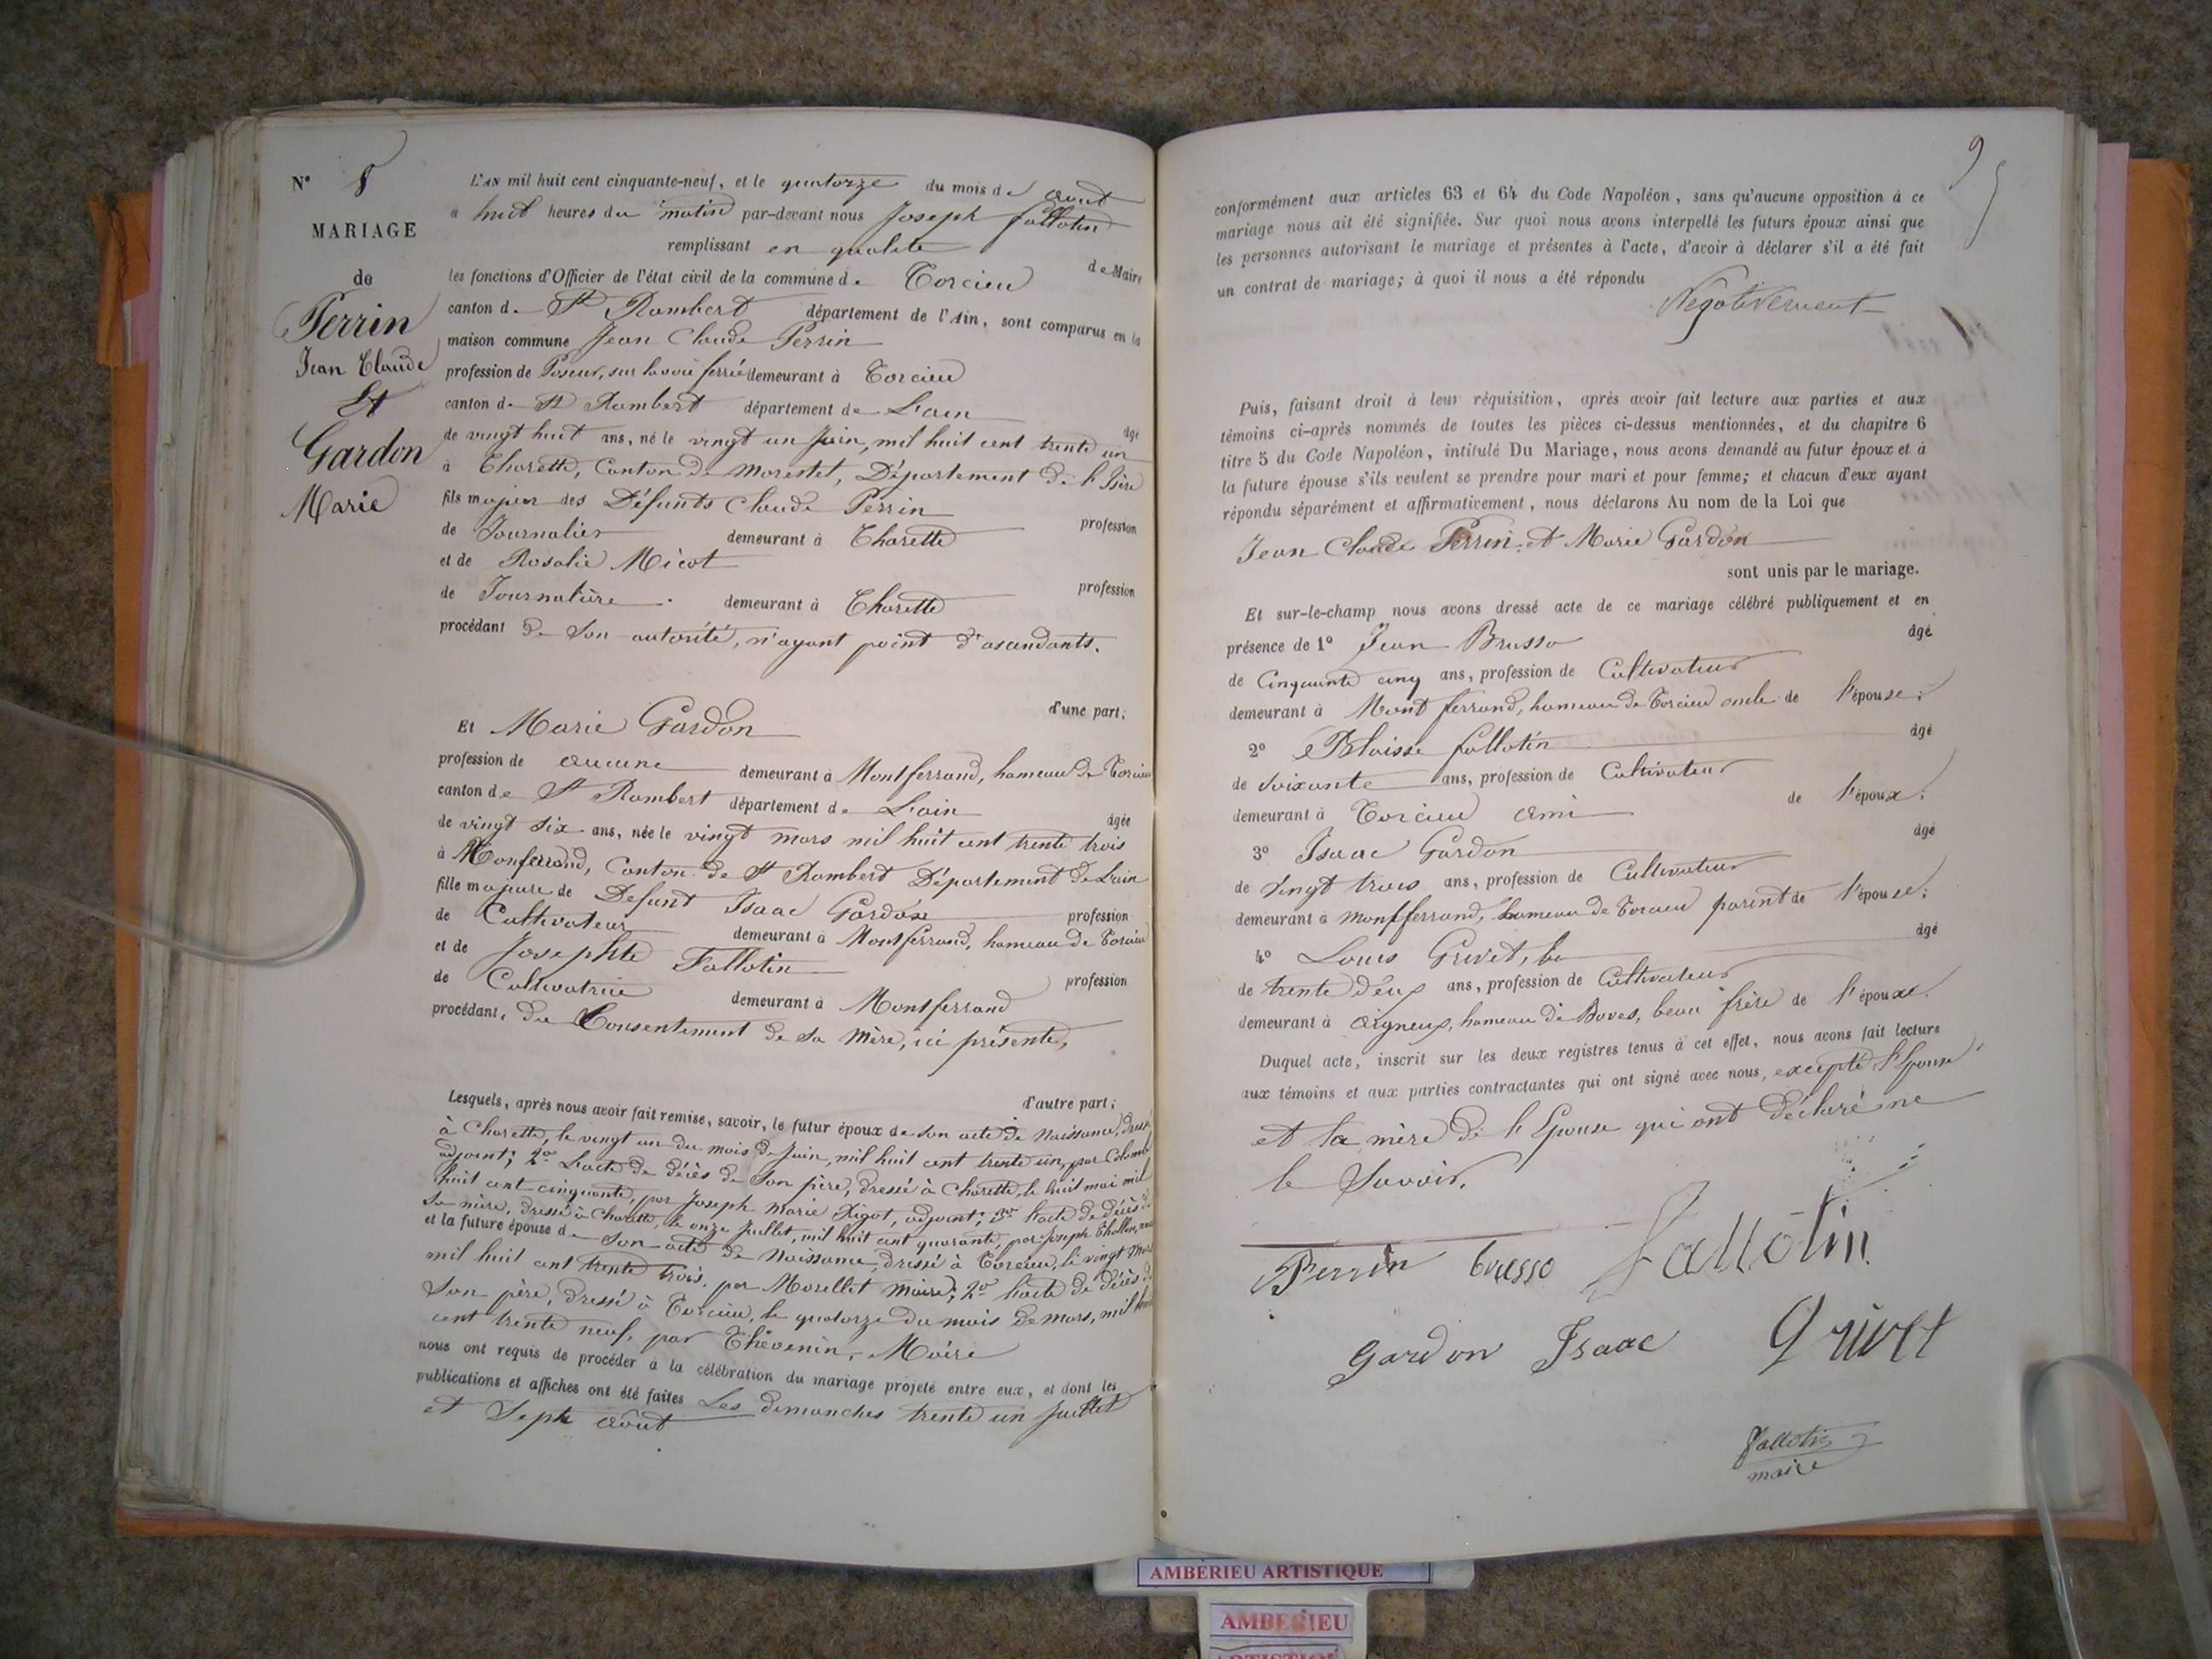 N° 8
MARIAGE
de
Perrin
Jean Claude
Et
Gardon
Marie
L'AN mil huit cent cinquante-neuf, et le quatorze du mois d' août
à huit heures du matin par-devant nous Joseph fallotin
remplissant en qualité de Maire
les fonctions d'Officier de l'état civil de la commune de Torcieu
canton de St Rambert département de l'Ain, sont comparus en la
maison commune Jean Claude Perrin
profession de Poseur, sur la voie ferrée demeurant à Torcieu
canton de St Rambert département de L'ain
âgé
de vingt huit ans, né le vingt un Juin, mil huit cent trente un
à Charette, Canton de Morestel, Département de l'Isère
fils majeur des Défunts Claude Perrin
profession
de Journalier demeurant à Charette
et de Rosalie Micot
profession
de Journalière demeurant à Charette
procédant de Son autorité, n'ayant point d'ascendants.
d'une part;
Et Marie Gardon
profession de aucune demeurant à Montferrand, hameau de Torcieu
canton de St Rambert département de L'ain
âgée
de vingt six ans, née le vingt mars mil huit cent trente trois
à Monferrand, Canton de St Rambert Département de L'ain
fille majeure de Défunt Isaac Gardon
profession
de Cultivateur demeurant à Montferrand, hameau de Torcieu
et de Josephte Fallotin
profession
de Cultivatrice demeurant à Montferrand
procédant, du Consentement de Sa Mère, ici présente,
d'autre part;
Lesquels, après nous avoir fait remise, savoir, le futur époux de Son acte de Naissance, dressé
à Charette, le vingt un du mois de Juin, mil huit cent trente un, par Colomb
adjoint; 2° L'acte de décès de Son père, dressé à Charette, le huit mai mil
huit cent cinquante, par Joseph Marie Rigot, adjoint; 3° l'acte de décès de
Sa mère, dressé à Charette, le onze Juillet, mil huit cent quarante, par Joseph
et la future épouse de Son acte de Naissance, dressé à Torcieu, le vingt Mars
mil huit cent trente trois, par Morellet Maire; 2° l'acte de décès de
Son père, dressé à Torcieu, le quatorze du mois de mars, mil huit
cent trente neuf, par Thévenin, Maire
nous ont requis de procéder à la célébration du mariage projeté entre eux, et dont les
publications et affiches ont été faites Les dimanches trente un Juillet
et Sept août
conformément aux articles 63 et 64 du Code Napoléon, sans qu'aucune opposition à ce
mariage nous ait été signifiée. Sur quoi nous avons interpellé les futurs époux ainsi que
les personnes autorisant le mariage et présentes à l'acte, d'avoir à déclarer s'il a été fait
un contrat de mariage; à quoi il nous a été répondu
Négativement
Puis, faisant droit à leur réquisition, après avoir fait lecture aux parties et aux
témoins ci-après nommés de toutes les pièces ci-dessus mentionnées, et du chapitre 6
titre 5 du Code Napoléon, intitulé Du Mariage, nous avons demandé au futur époux et à
la future épouse s'ils veulent se prendre pour mari et pour femme; et chacun d'eux ayant
répondu séparément et affirmativement, nous déclarons Au nom de la Loi que
Jean Claude Perrin et Marie Gardon
sont unis par le mariage.
Et sur-le-champ nous avons dressé acte de ce mariage célébré publiquement et en
présence de 1° Jean Brusso âgé
de Cinquante cinq ans, profession de Cultivateur
demeurant à Mont ferrand, hameau de Torcieu oncle de l'épouse;
2° Blaisse fallotin âgé
de Soixante ans, profession de Cultivateur
demeurant à Torcieu ami de l'époux;
3° Isaac Gardon âgé
de Vingt trois ans, profession de Cultivateur
demeurant à Montferrand, hameau de Torcieu parent de l'épouse;
4° Louis Grivet, be âgé
de trente deux ans, profession de Cultivateur
demeurant à aigneux, hameau de Boves, beau frère de l'époux.
Duquel acte, inscrit sur les deux registres tenus à cet effet, nous avons fait lecture
aux témoins et aux parties contractantes qui ont signé avec nous, excepté l'Epouse
et la mère de l'Epouse qui ont déclaré ne
le Savoir.
Perrin brusso fallotin
Gardon Isaac Grivet
Fallotin
maire
AMBÉRIEU ARTISTIQUE
AMBERIEU
ARTISTIQUE